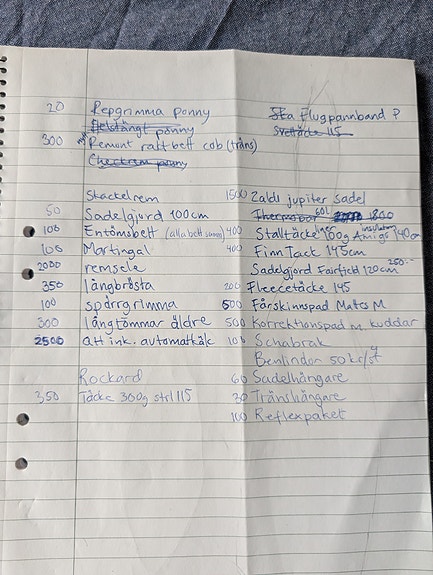 20 Repgrimma ponny
Helstångt ponny
300 ny Remont raktbett cob (träns)
Checkrem ponny
Skackelrem
50 Sadelgjord 100cm
100 Entömsbett (alla bett samma)
100 Martingal
2000 remsele
350 långbrösta
100 spärrgrimma
300 långtömmar äldre
2500 att ink. automatkäk
Rockard
350 Täcke 300g strl 115
Sta Flugpannband P
Svettäcke 115
1500 Zaldi jupiter sadel
Thermobar
400 Stalltäcke 100g insulation Amigo 140cm
400 FinnTack 145cm
Sadelgjord Fairfield 120cm 250:-
200 Fleecetäcke 145
500 Fårskinnspad Mattes M
500 Korrektionspad m kuddar
100 Schabrak
Benlindor 50kr/st
60 Sadelhängare
30 Tränshängare
100 Reflexpaket